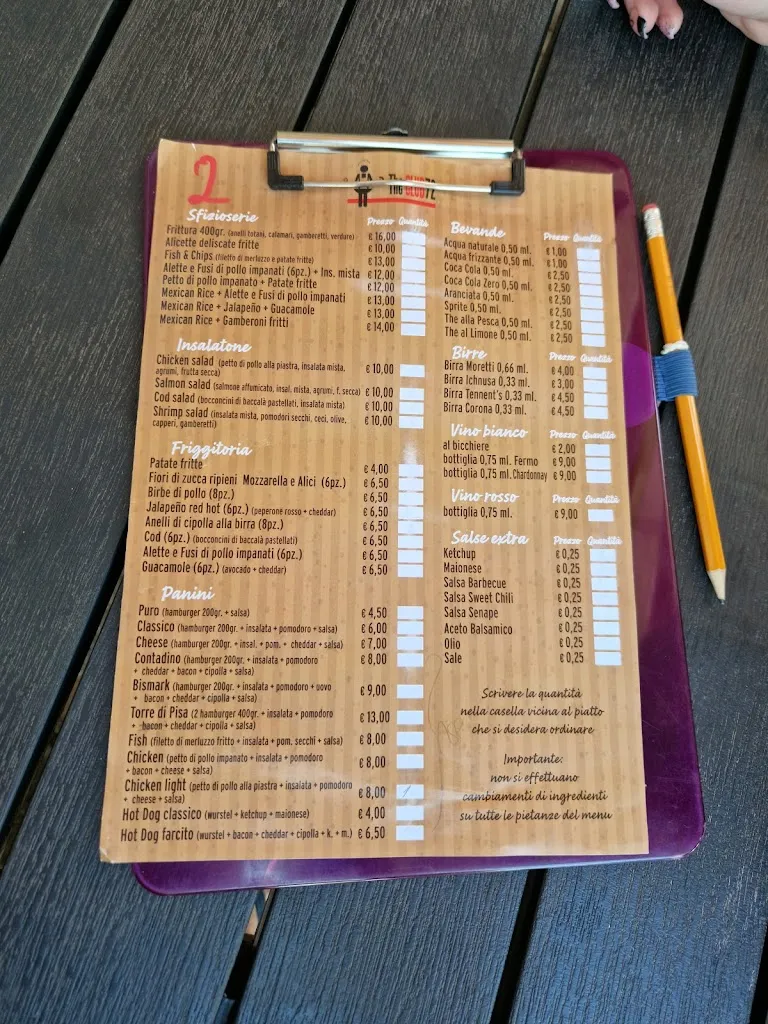 2
The CLUB72
THE CLUB72
Sfizioserie
Prezzo Quantità
Frittura 400gr. (anelli totani, calamari, gamberetti, verdure) € 16,00
Alicette deliscate fritte € 10,00
Fish & Chips (filetto di merluzzo e patate fritte) € 13,00
Alette e Fusi di pollo impanati (6pz.) + Ins. mista € 12,00
Petto di pollo impanato + Patate fritte € 12,00
Mexican Rice + Alette e Fusi di pollo impanati € 13,00
Mexican Rice + Jalapeño + Guacamole € 13,00
Mexican Rice + Gamberoni fritti € 14,00
Insalatone
Chicken salad (petto di pollo alla piastra, insalata mista, € 10,00
agrumi, frutta secca)
Salmon salad (salmone affumicato, insal. mista, agrumi, f. secca) € 10,00
Cod salad (bocconcini di baccalà pastellati, insalata mista) € 10,00
Shrimp salad (insalata mista, pomodori secchi, ceci, olive, € 10,00
capperi, gamberetti)
Friggitoria
Patate fritte € 4,00
Fiori di zucca ripieni Mozzarella e Alici (6pz.) € 6,50
Birbe di pollo (8pz.) € 6,50
Jalapeño red hot (6pz.) (peperone rosso + cheddar) € 6,50
Anelli di cipolla alla birra (8pz.) € 6,50
Cod (6pz.) (bocconcini di baccalà pastellati) € 6,50
Alette e Fusi di pollo impanati (6pz.) € 6,50
Guacamole (6pz.) (avocado + cheddar) € 6,50
Panini
Puro (hamburger 200gr. + salsa) € 4,50
Classico (hamburger 200gr. + insalata + pomodoro + salsa) € 6,00
Cheese (hamburger 200gr. + insal. + pom. + cheddar + salsa) € 7,00
Contadino (hamburger 200gr. + insalata + pomodoro € 8,00
+ cheddar + bacon + cipolla + salsa)
Bismark (hamburger 200gr. + insalata + pomodoro + uovo € 9,00
+ bacon + cheddar + cipolla + salsa)
Torre di Pisa (2 hamburger 400gr. + insalata + pomodoro € 13,00
+ bacon + cheddar + cipolla + salsa)
Fish (filetto di merluzzo fritto + insalata + pom. secchi + salsa) € 8,00
Chicken (petto di pollo impanato + insalata + pomodoro € 8,00
+ bacon + cheese + salsa)
Chicken light (petto di pollo alla piastra + insalata + pomodoro € 8,00
+ cheese + salsa)
Hot Dog classico (wurstel + ketchup + maionese) € 4,00
Hot Dog farcito (wurstel + bacon + cheddar + cipolla + k. + m.) € 6,50
Bevande
Prezzo Quantità
Acqua naturale 0,50 ml. € 1,00
Acqua frizzante 0,50 ml. € 1,00
Coca Cola 0,50 ml. € 2,50
Coca Cola Zero 0,50 ml. € 2,50
Aranciata 0,50 ml. € 2,50
Sprite 0,50 ml. € 2,50
The alla Pesca 0,50 ml. € 2,50
The al Limone 0,50 ml. € 2,50
Birre Prezzo Quantità
Birra Moretti 0,66 ml. € 4,00
Birra Ichnusa 0,33 ml. € 3,00
Birra Tennent's 0,33 ml. € 4,50
Birra Corona 0,33 ml. € 4,50
Vino bianco Prezzo Quantità
al bicchiere € 2,00
bottiglia 0,75 ml. Fermo € 9,00
bottiglia 0,75 ml. Chardonnay € 9,00
Vino rosso Prezzo Quantità
bottiglia 0,75 ml. € 9,00
Salse extra Prezzo Quantità
Ketchup € 0,25
Maionese € 0,25
Salsa Barbecue € 0,25
Salsa Sweet Chili € 0,25
Salsa Senape € 0,25
Aceto Balsamico € 0,25
Olio € 0,25
Sale € 0,25
Scrivere la quantità
nella casella vicina al piatto
che si desidera ordinare
Importante:
non si effettuano
cambiamenti di ingredienti
su tutte le pietanze del menu